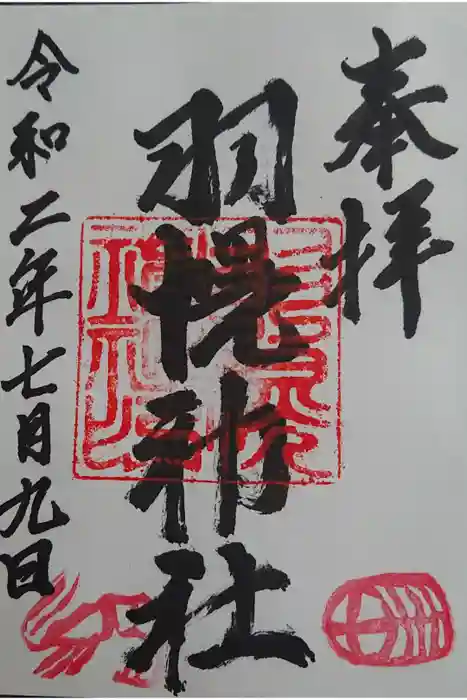 奉拝
羽幌神社
令和二年七月九日